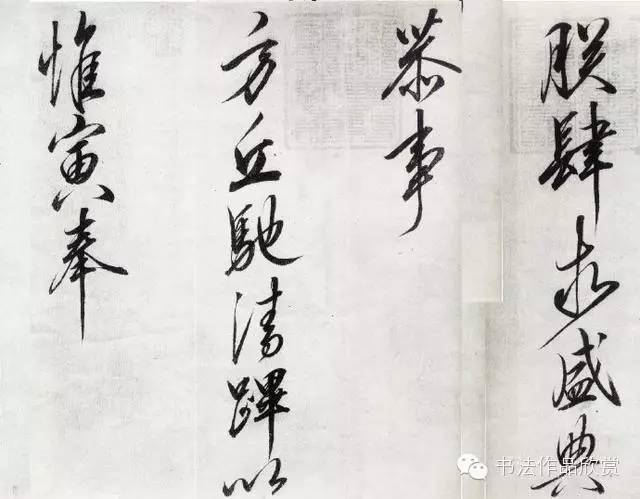 朕肆求盛典
恭事
方丘馳清蹕以
惟寅奉
书法作品欣赏